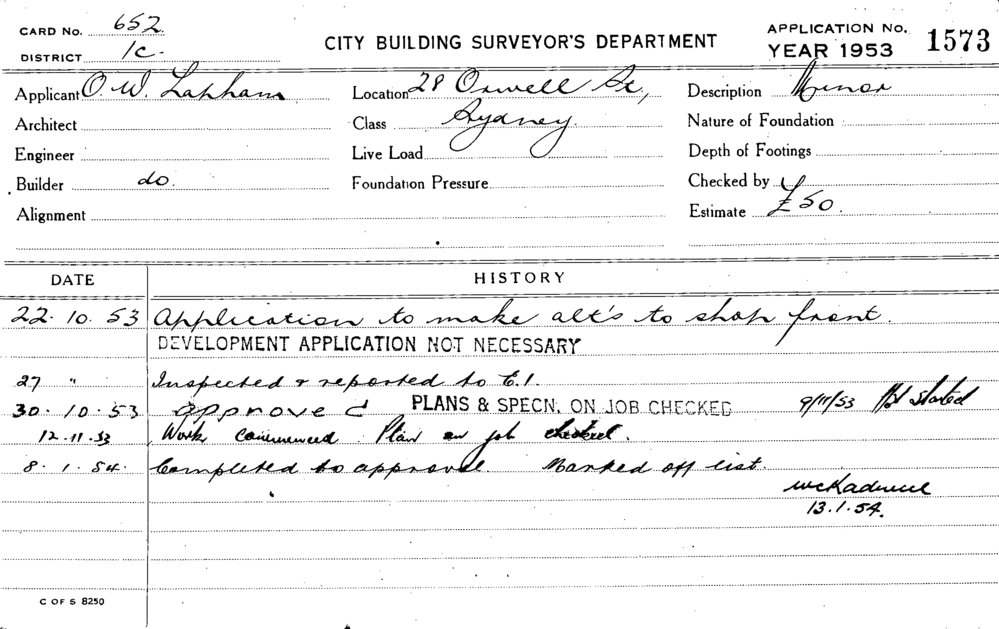 CARD No. 652
DISTRICT 1C.
CITY BUILDING SURVEYOR'S DEPARTMENT
APPLICATION No. 1573
YEAR 1953
Applicant O W. Lapham Location 28 Orwell St, Description Minor
Architect Class Sydney. Nature of Foundation
Engineer Live Load Depth of Footings
Builder do. Foundation Pressure Checked by
Alignment Estimate £50.
DATE HISTORY
22.10.53 Application to make alt's to shop front.
DEVELOPMENT APPLICATION NOT NECESSARY
27 " Inspected & reported to E.I.
30.10.53 approved PLANS & SPECN. ON JOB CHECKED 9/11/53 Not started
12.11.53 Work commenced Plan on job checked.
8.1.54. Completed to approval. Marked off list.
13.1.54.
C OF S 8250